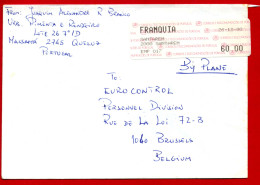 From: Joaquim Alexandre R. Branco
Urb. Pimenta e Rendeiro
Lte 26 7º D
Massamá 2745 Queluz
Portugal
FRANQUIA
60.00
By Plane
To:
EUROCONTROL
Personnel Division
Rue de la Loi 72-B
1040 Brussels
Belgium